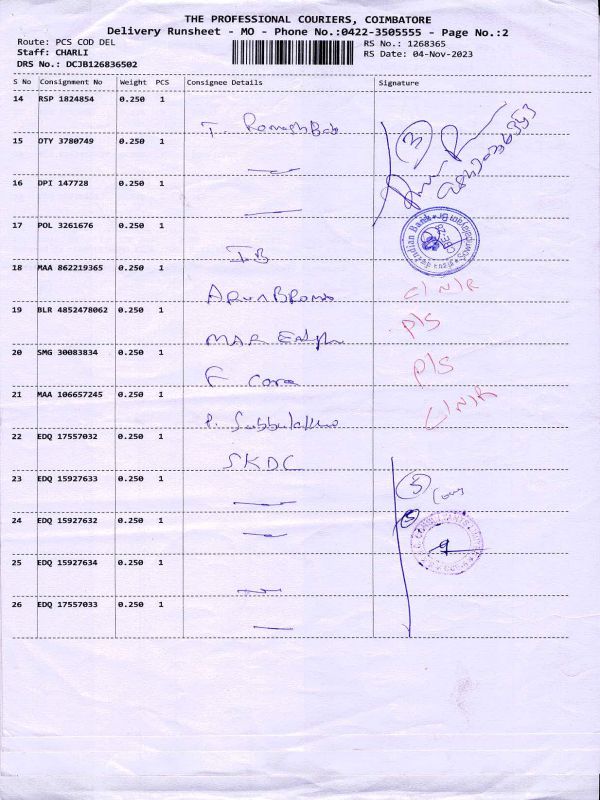 THE PROFESSIONAL COURIERS, COIMBATORE
Delivery Runsheet - MO - Phone No.:0422-3505555 - Page No.:2
Route: PCS COD DEL RS No.: 1268365
Staff: CHARLI RS Date: 04-Nov-2023
DRS No.: DCJB126836502
S No Consignment No Weight PCS Consignee Details Signature
14 RSP 1824854 0.250 1
T.
15 OTY 3780749 0.250 1
16 DPI 147728 0.250 1
17 POL 3261676 0.250 1
IB
Indian Bank
18 MAA 862219365 0.250 1
C/N/R
19 BLR 4852478062 0.250 1
MAR
P/S
20 SMG 30083834 0.250 1
F
P/S
21 MAA 106657245 0.250 1
P.
C/N/R
22 EDQ 17557032 0.250 1
SKDC
23 EDQ 15927633 0.250 1
5
24 EDQ 15927632 0.250 1
25 EDQ 15927634 0.250 1
26 EDQ 17557033 0.250 1